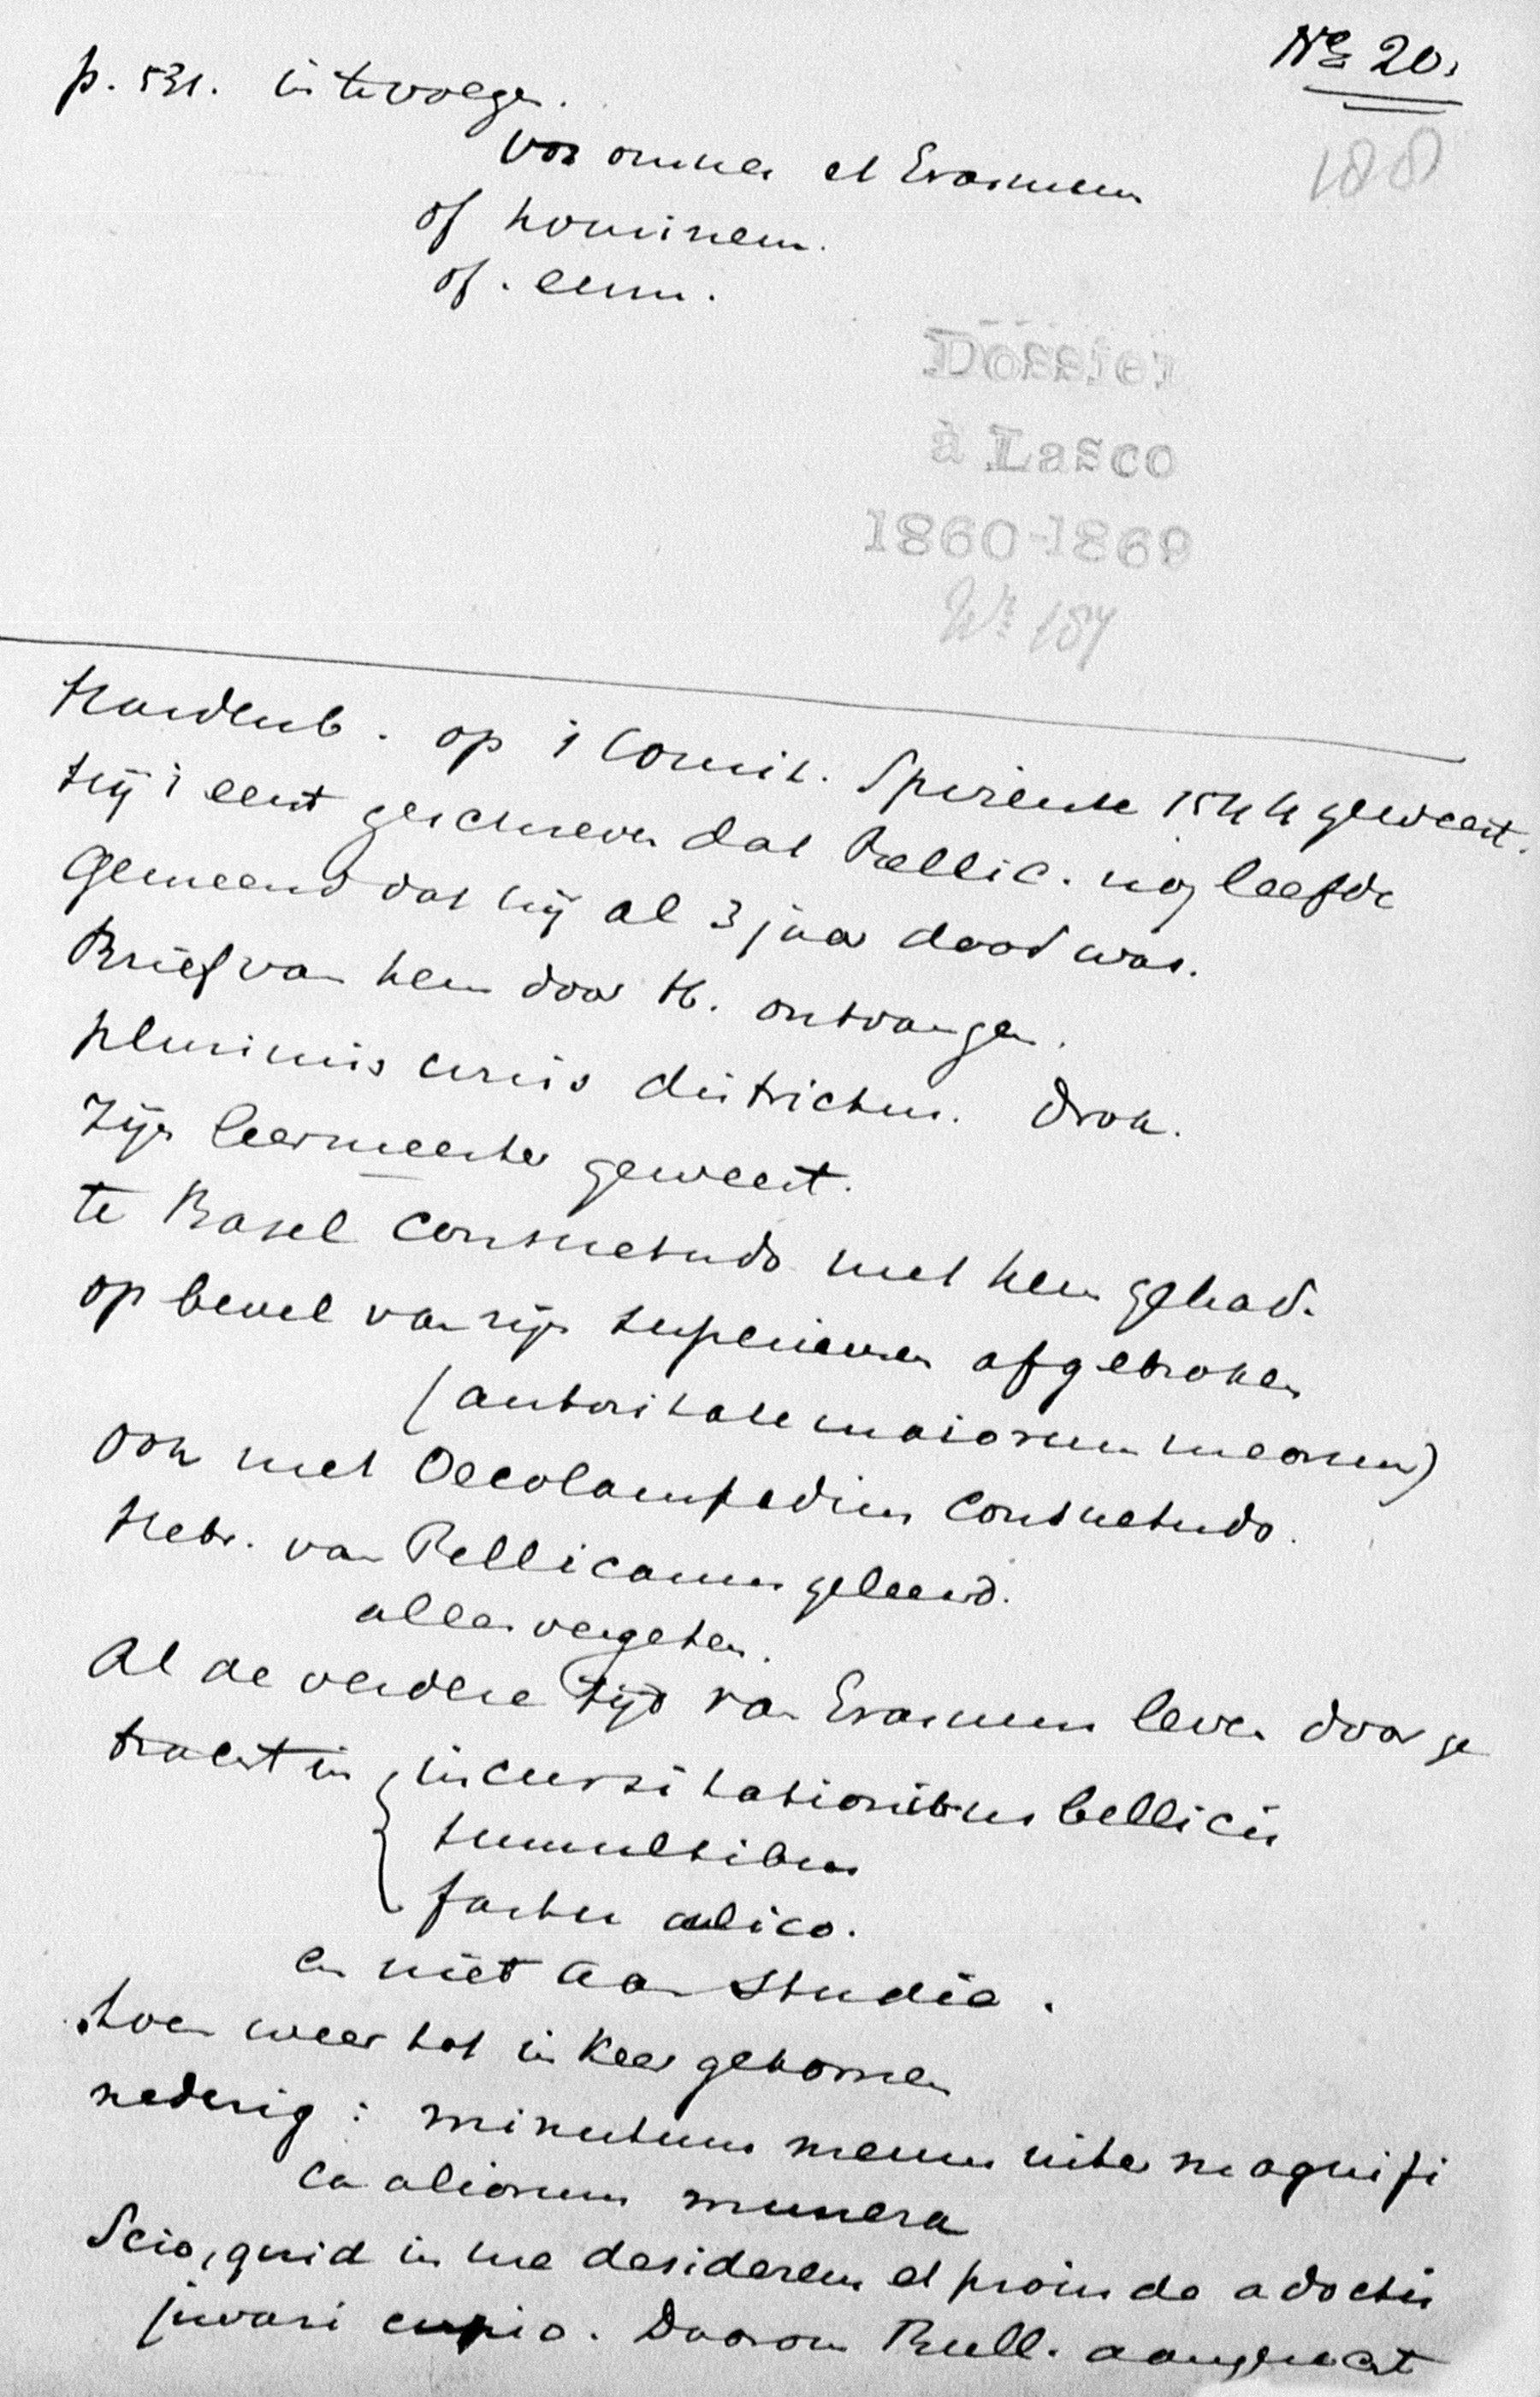 No 20.
p. 531. in te voegen.
188
vos omnes et Erasmum
of hominem.
of . eum.
Dossier
à Lasco
1860-1869
No 187
Hardenb. op 't Comit. Spirense 1544 geweest.
Hij 't eerst geschreven dat Pellic. nog leefde
Gemeend dat hij al 3 jaar dood was.
Brief van hem door H. ontvangen.
plurimis curis districtus.
Zijn leermeester geweest.
te Basel consuetudo met hem gehad.
op bevel van zijn superieuren afgebroken
(autoritate maiorum meorum)
ook met Oecolampadius consuetudo.
Hebr. van Pellicanus geleerd.
alles vergeten.
Al de verdere tijd van Erasmus leven door ge
bracht in { incursitationibus bellicis
tumultibus
fastu aulico.
en niet aan studie.
toen weer tot inkeer gekomen
nederig : minutum meum inter magnifi
ca aliorum munera
Scio, quid in me desiderem et proinde a doctis
juvari cupio. Daarom Bull. aangezocht